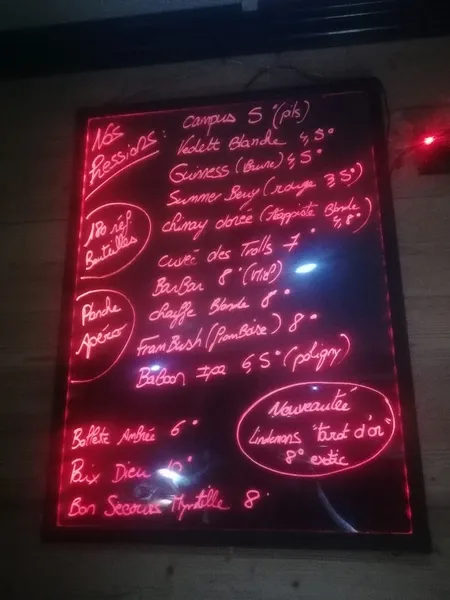 Nos Pressions :
Campus 5° (pils)
Vedett Blanche 4,5°
Guinness (Brune) 4,5°
Summer Beuy (rouge 3,5°)
chimay dorée (Trappiste Blonde 4,8°
cuvée des Trolls 7°
BarBar 8° (Miel)
chouffe Blonde 8°
FramBush (framboise) 8°
Baboon Ipa 6,5° (poligny)
180 réf Bouteilles
Planche Apéro
Nouveautée
Lindemans "tarot d'or"
8° exotic
Bellete Ambrée 6°
Paix Dieu 10°
Bon Secours Myrtille 8°